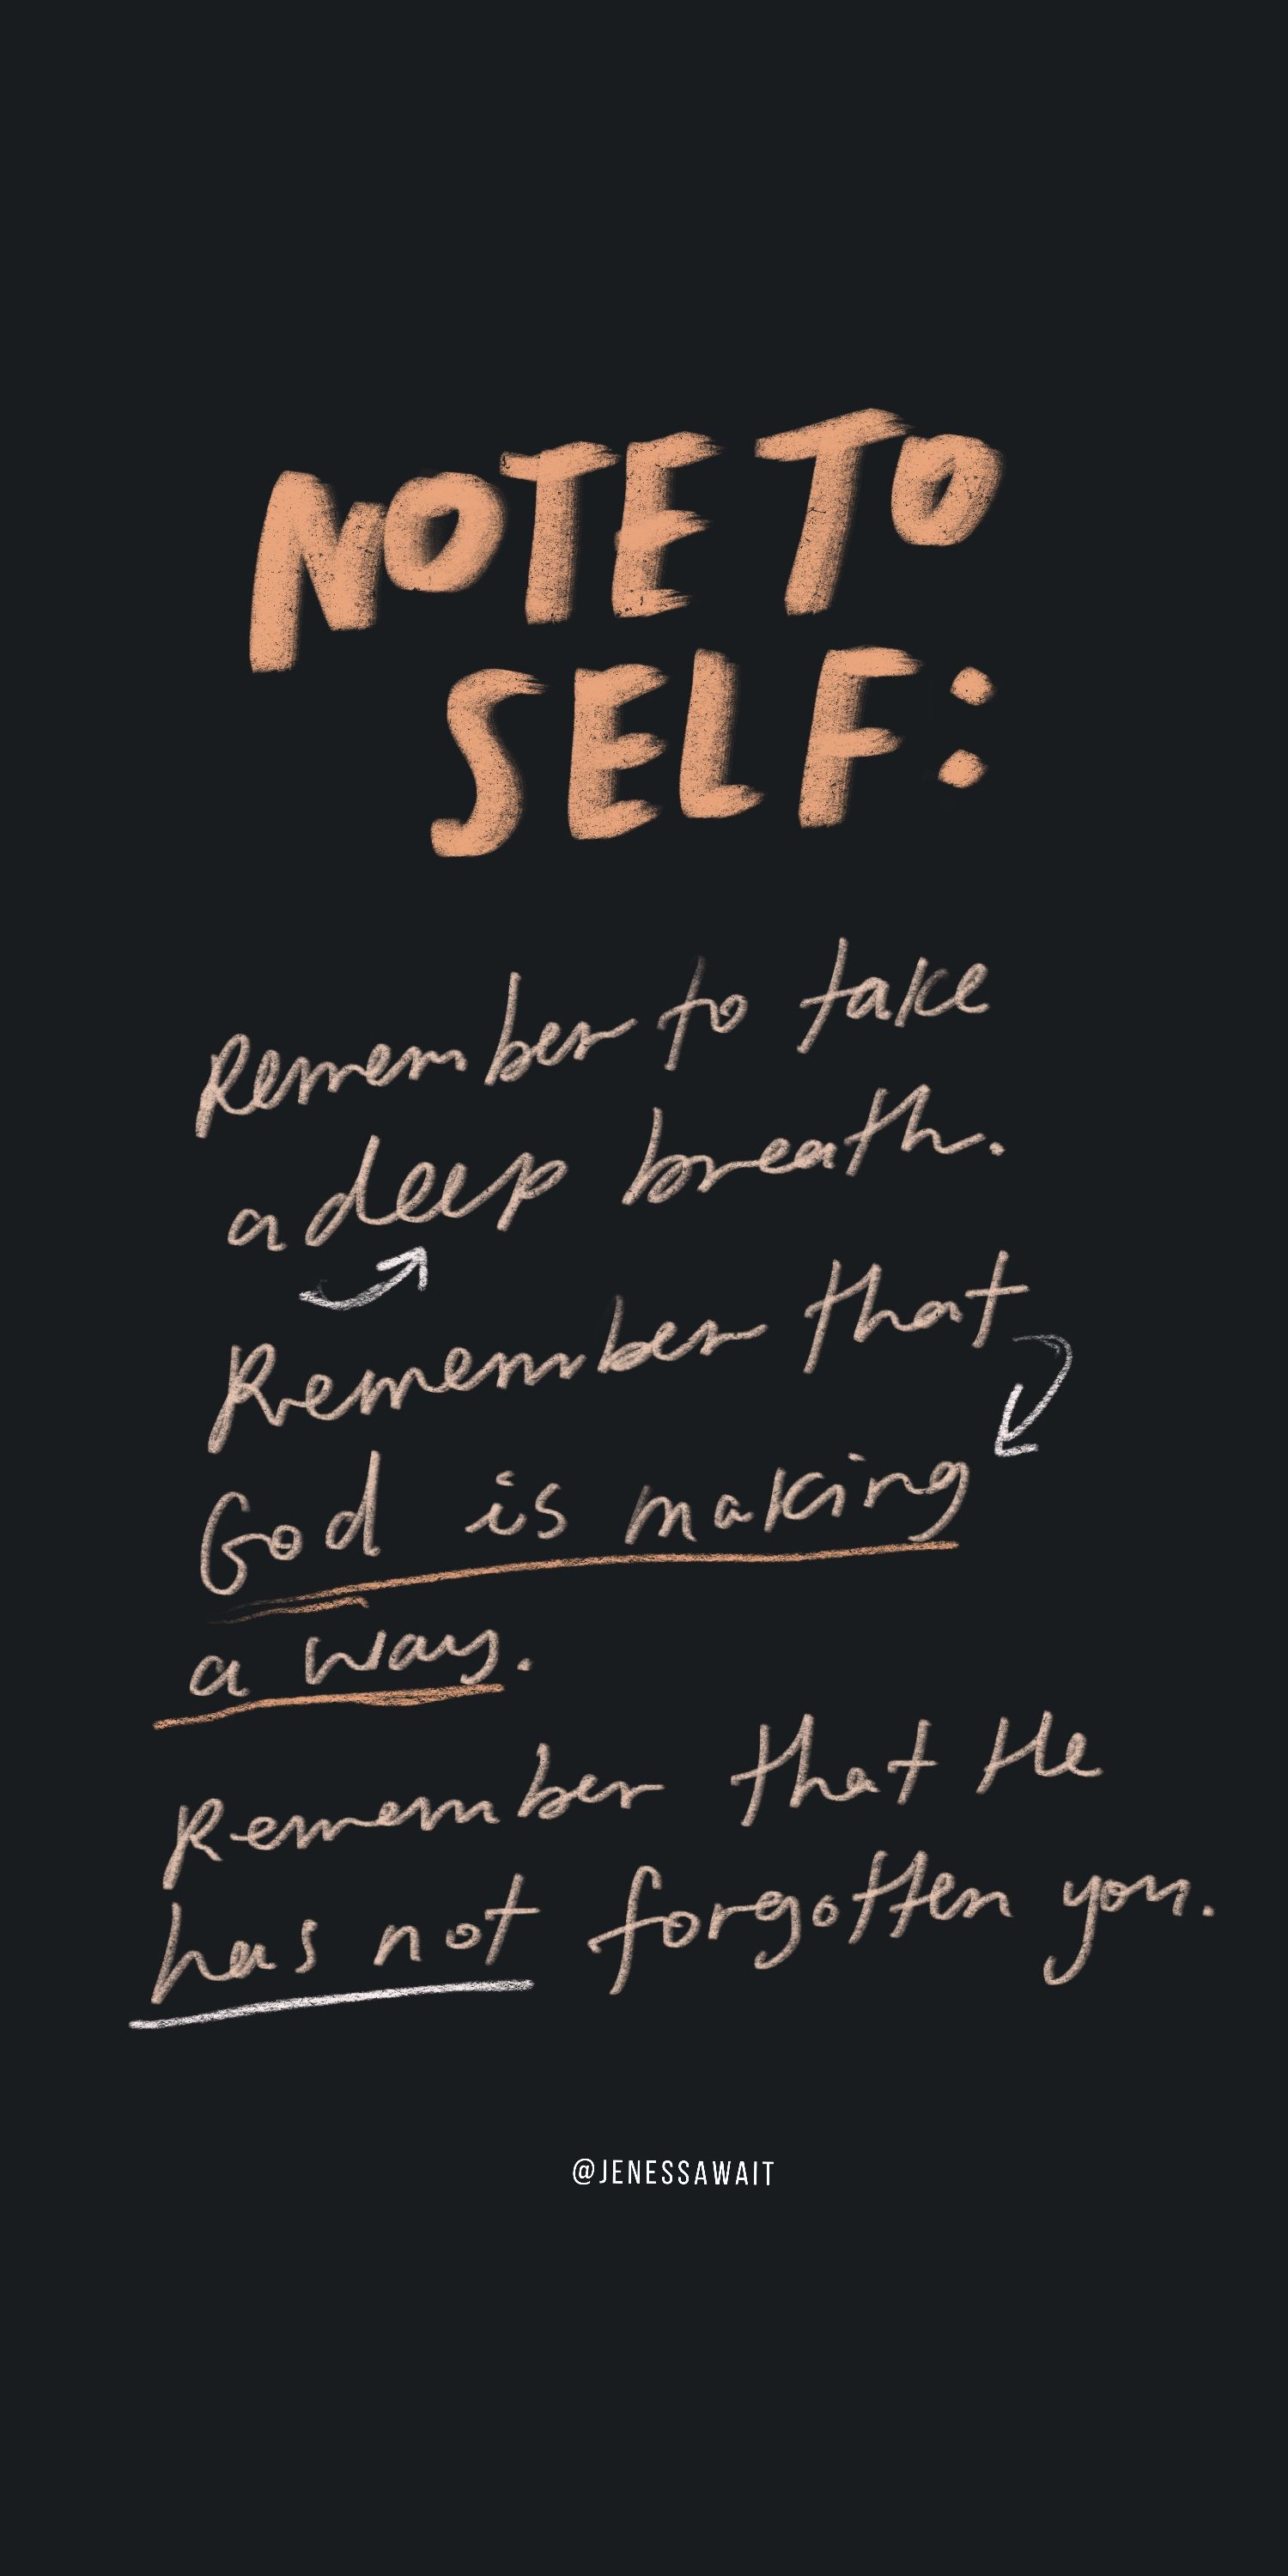 NOTE TO
SELF:
Remember to take
a deep breath.
Remember that
God is making
a way.
Remember that He
has not forgotten you.
@JENESSAWAIT